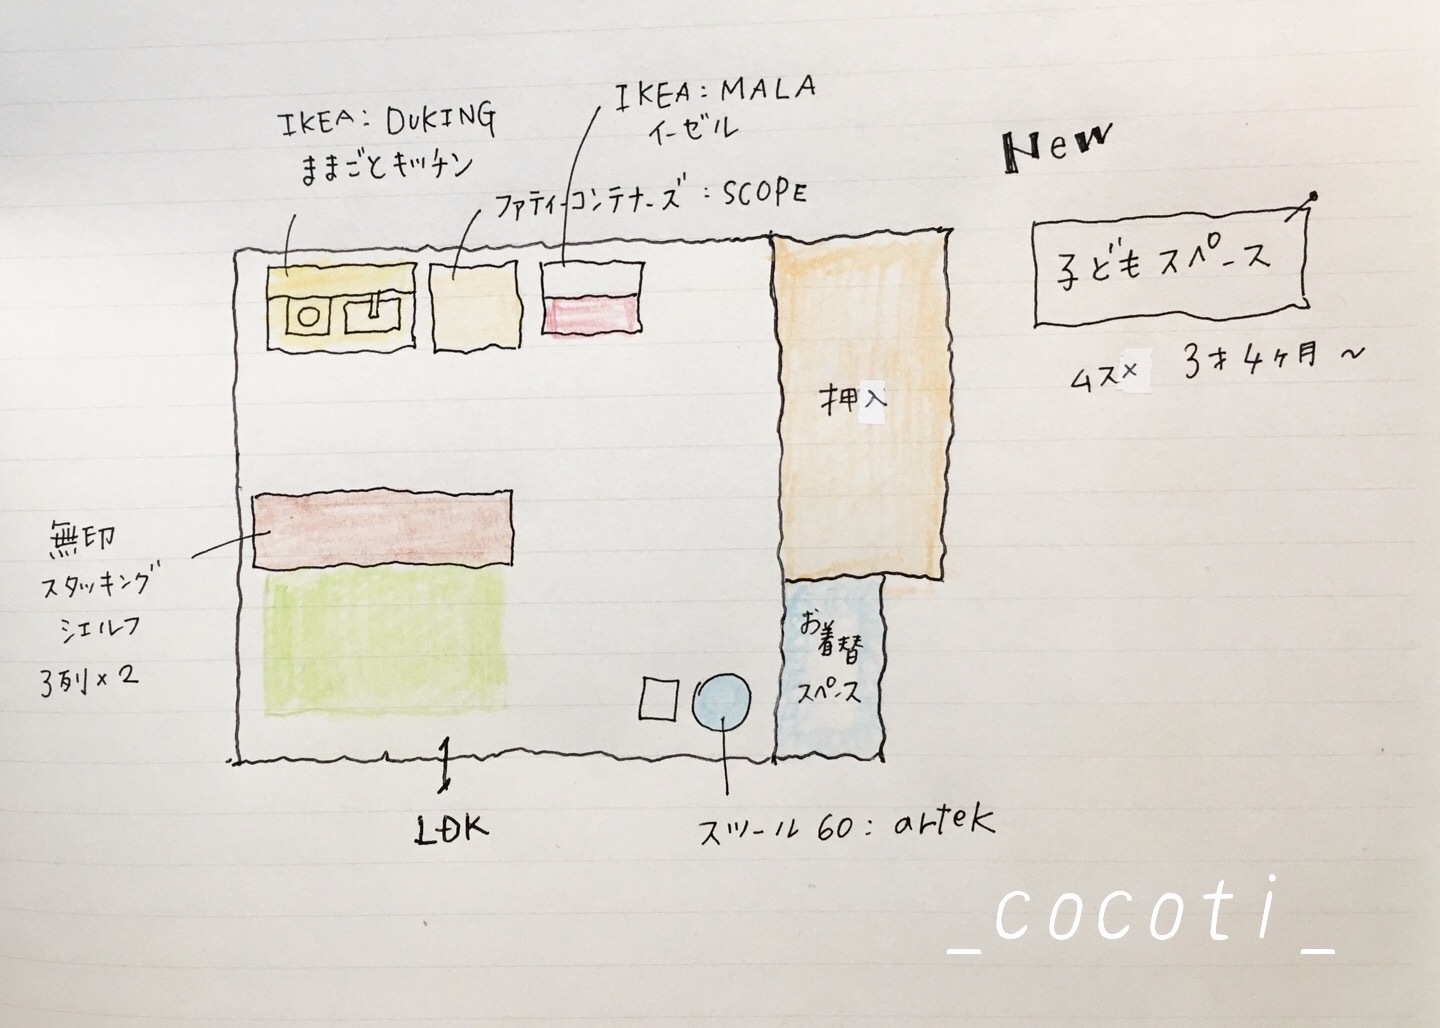 IKEA: DUKING
ままごとキッチン
IKEA: MALA
イーゼル
ファティーコンテナーズ : SCOPE
New
子どもスペース
ムスメ 3才4ヶ月〜
押入
無印
スタッキング
シェルフ
3列×2
お着替
スペース
LDK
スツール60: artek
_cocoti_